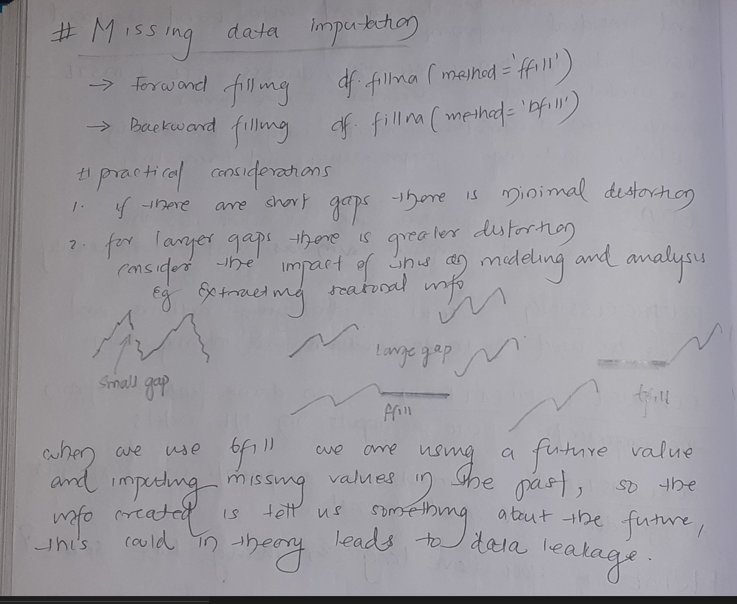 # Missing data imputation
→ Forward filling df.fillna(method='ffill')
→ Backward filling df.fillna(method='bfill')
# practical considerations
1. if there are short gaps there is minimal distortion
2. for larger gaps there is greater distortion
consider the impact of this on modeling and analysis
Eg Extracting seasonal info
small gap
large gap
ffill
bfill
when we use bfill we are using a future value
and imputing missing values in the past, so the
info created is tell us something about the future,
this could in theory leads to data leakage.